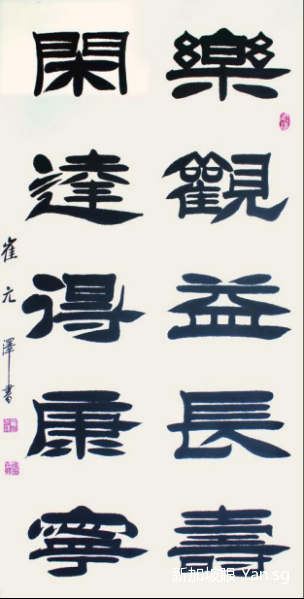 樂觀益長壽
閑達得康寧
崔元澤書
新加坡眼 Yan.sg